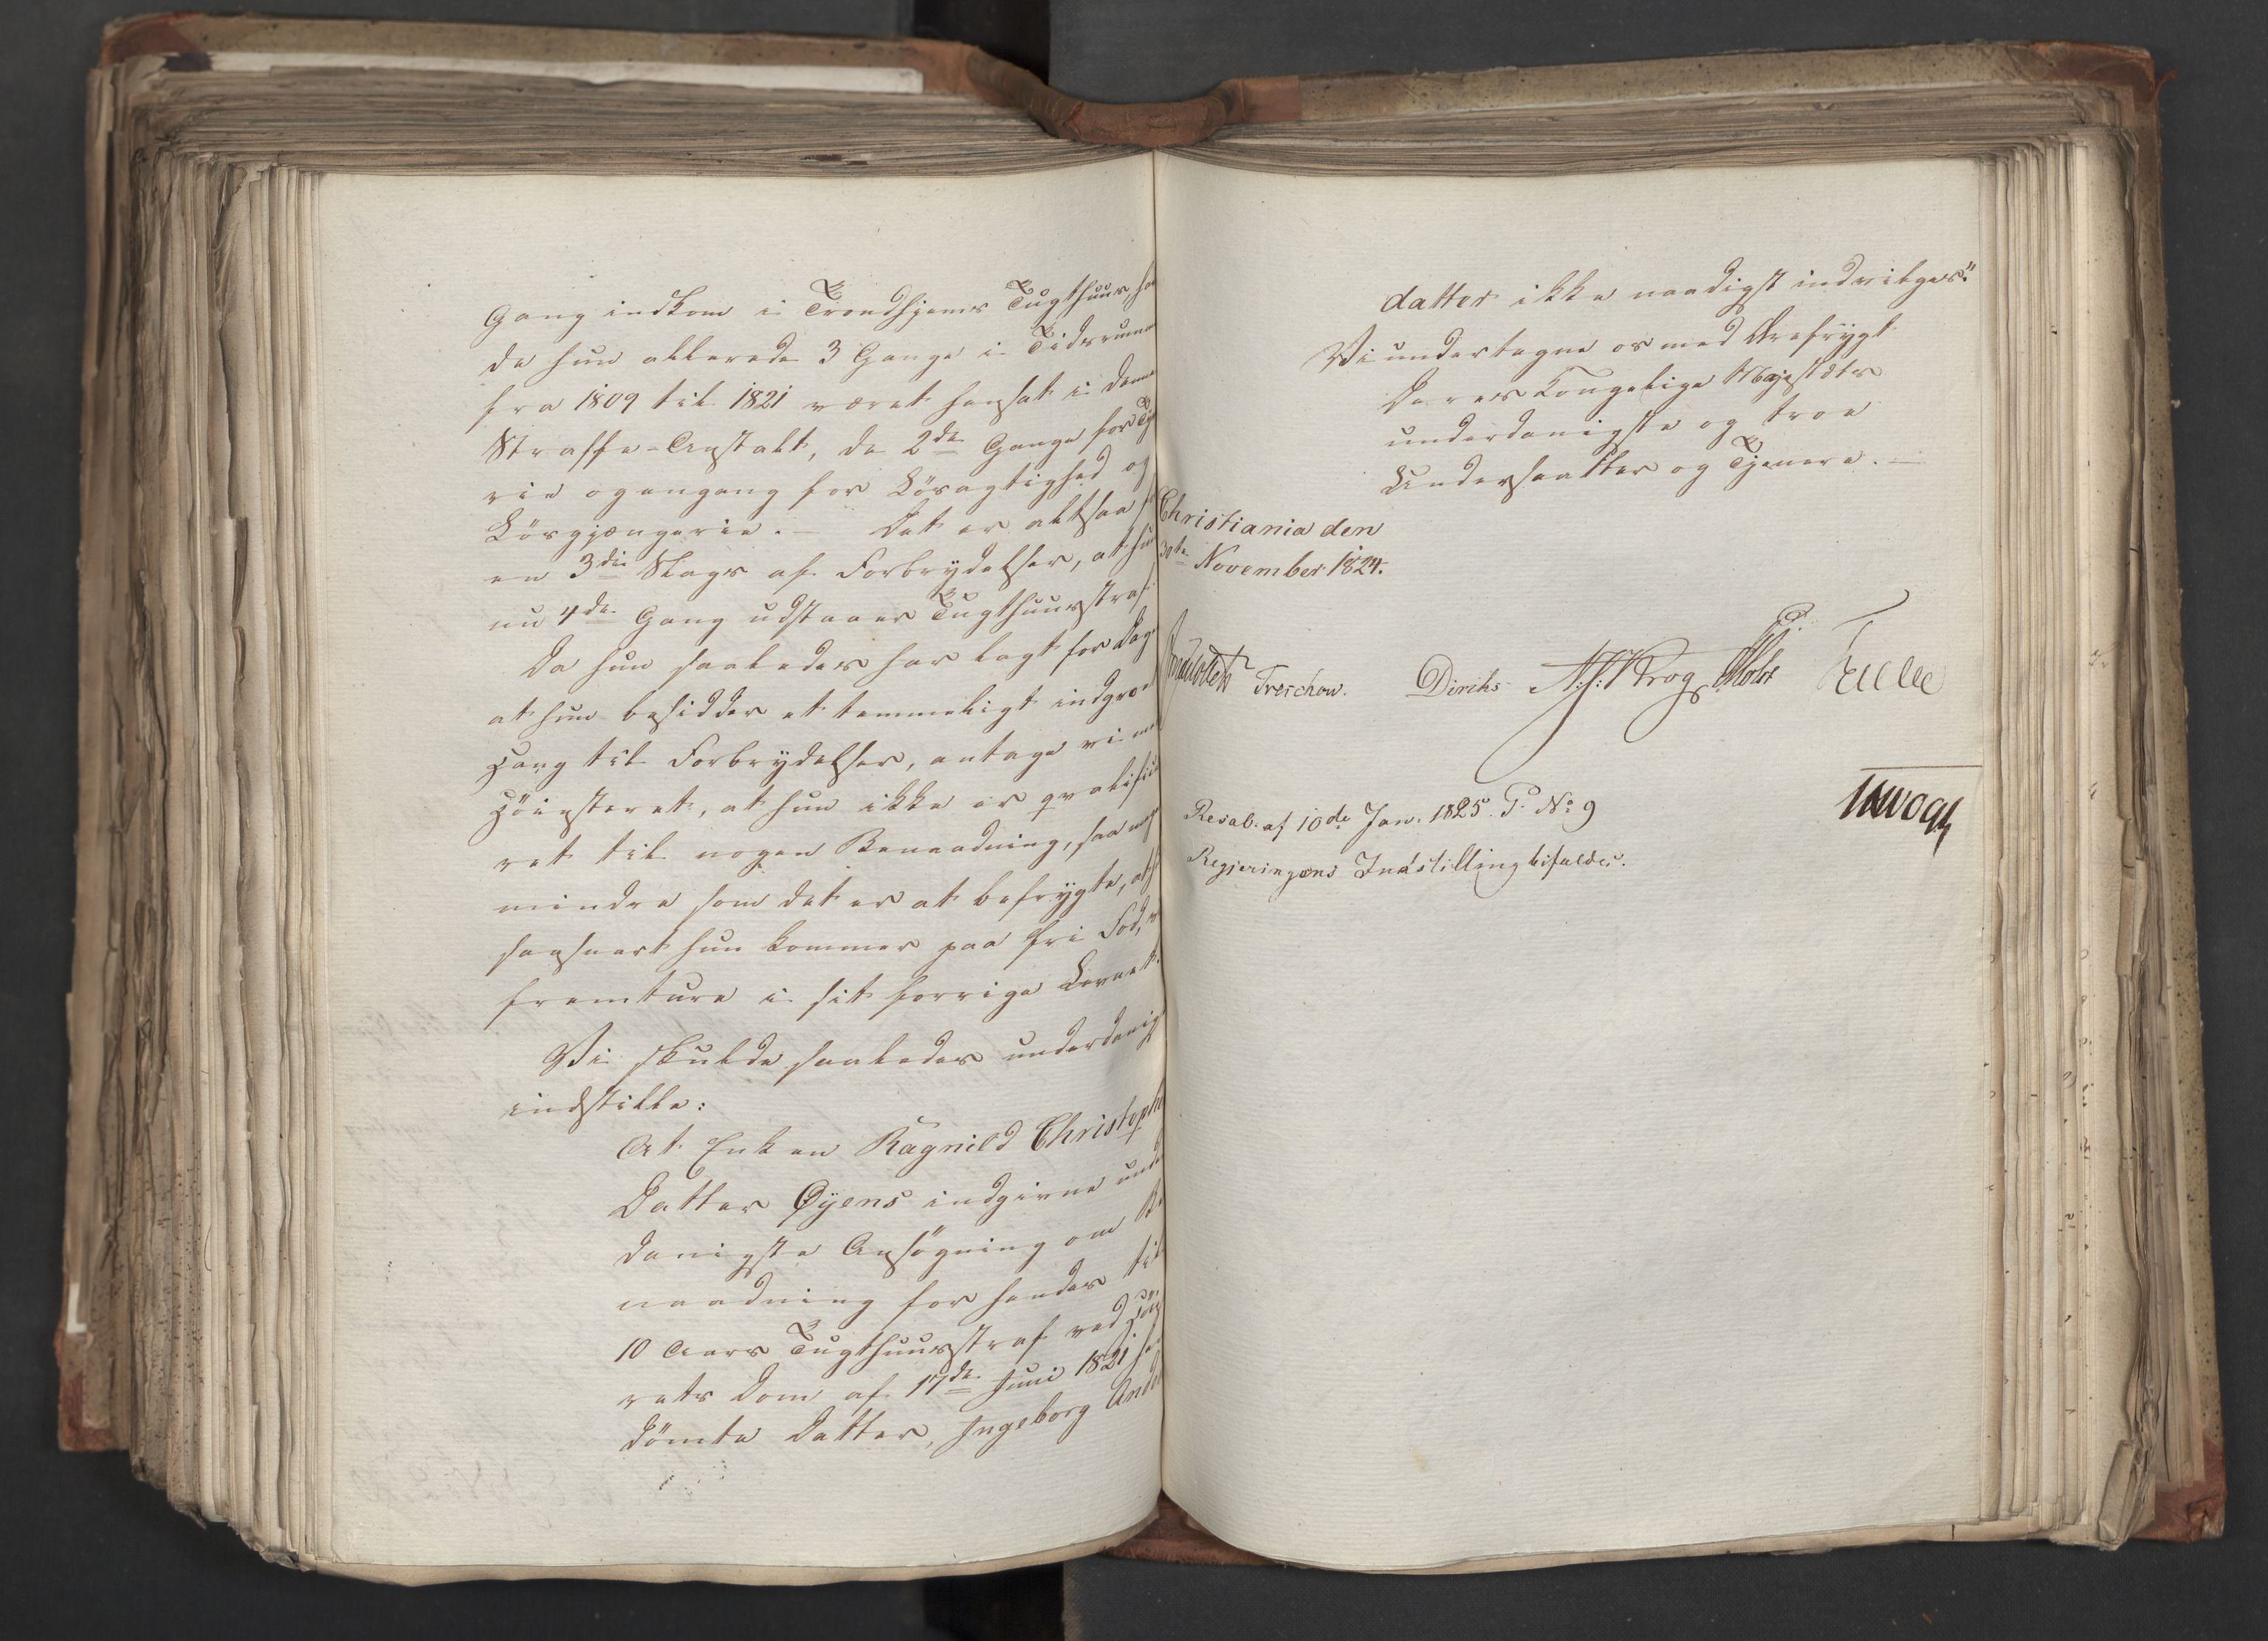 Gang indkom i Trondhjems Tugthuus ha
da hun allerede 3 Gange i Tidsrumm
fra 1809 til 1821 været hensat i denne
Straffe-Anstalt, de 2de Gange for Ty
rie og engang for Lösagtighed og
Lösgjængerie. – Det er altsaa f
en 3die Slags af Forbrydelser, at hun
nu 4de Gang udstaaer Tugthuusstraf
Da hun saaledes har lagt for Dag
at hun besidder et temmeligt indgroe
Hang til Forbrydelser, antage vi me
Höiesteret, at hun ikke er qvalifice
ret til nogen Benaadning, saa meg
mindre som det er at befrygte, at
saasnart hun kommer paa fri Fod,
fremture i sit forrige Levnet.
Vi skulde saaledes underdanig
indstille:
At Enken Ragnild Christoph
Datter Øyens indgivne unde
danigste Ansögning om Be
naadning for hendes til
10 Aars Tugthuusstraf ved Höie
rets Dom af 17de Juni 1821 hen
dömte Datter, Ingeborg Ande
datter ikke naadigst indvilges."
Vi undertegne os med Ærefrygt
Deres Kongelige Majestæts
underdanigste og troe
Undersaatter og Tjenere. –
Christiania den
30te November 1824.
Treschow. Diriks Krog Motzf
Resol. af 10de Jan. 1825. P. No 9
Regjeringens Indstilling bifaldes.